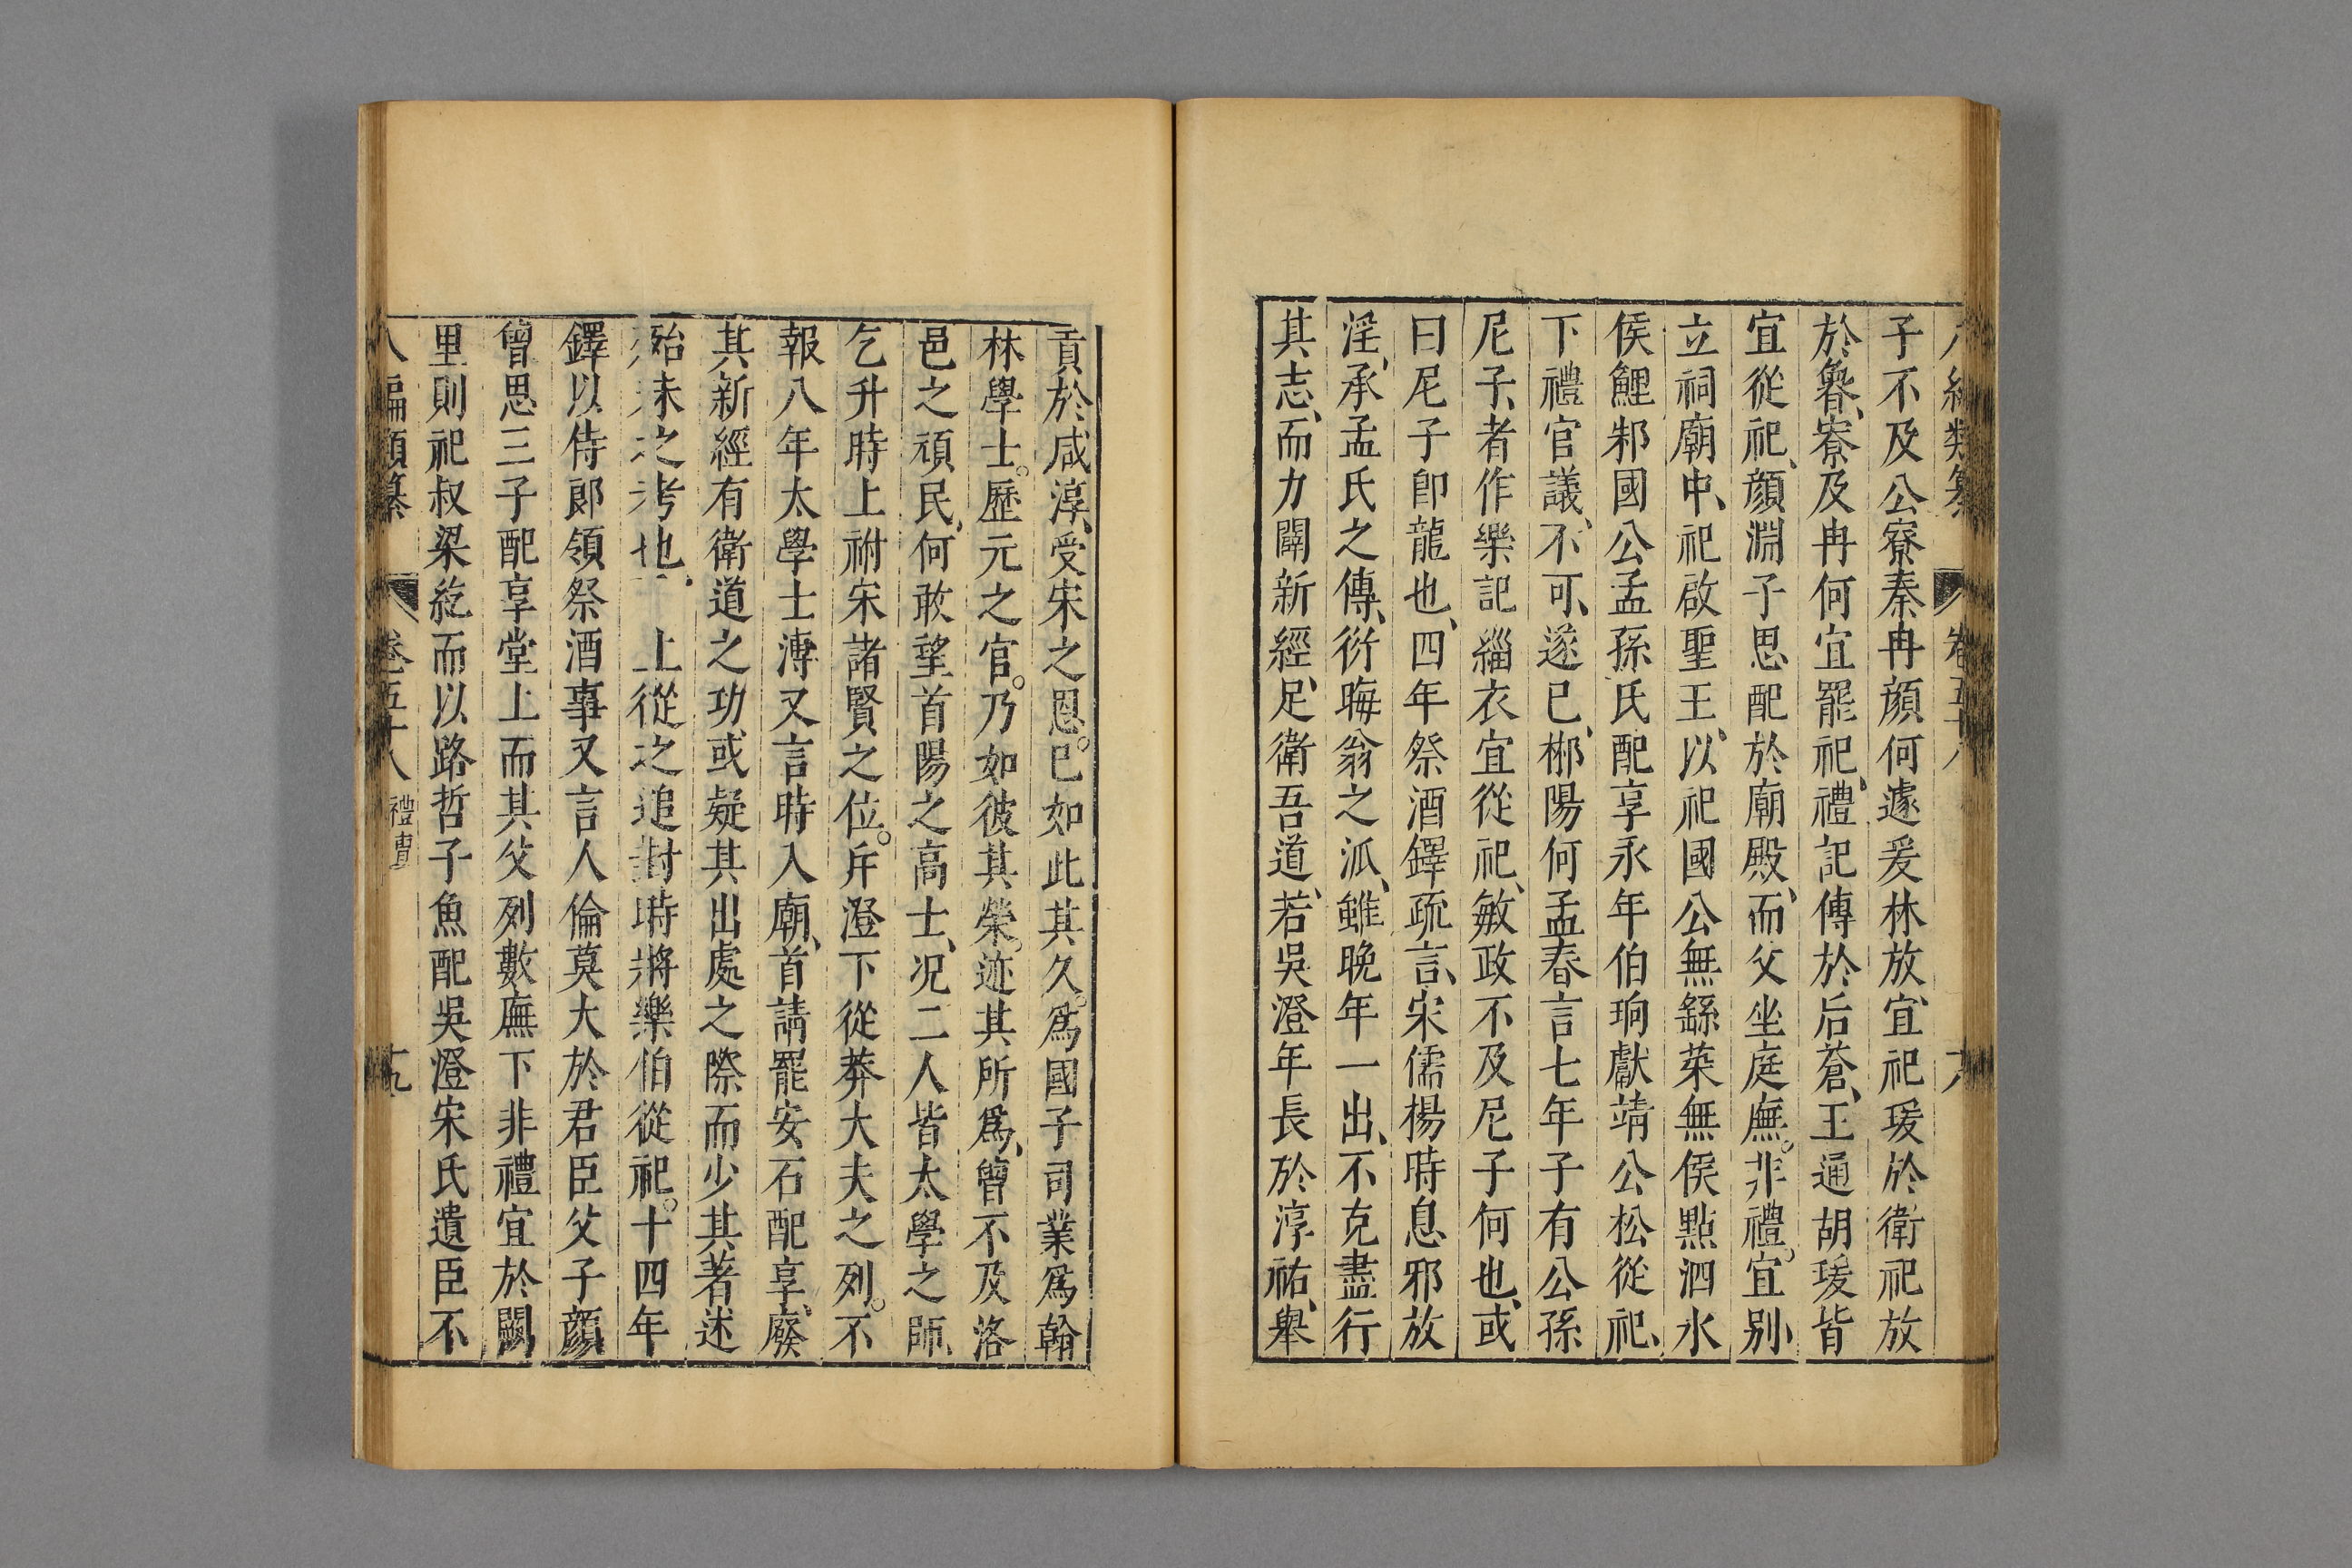 八編類纂 卷五十八
子不及公寮秦冉顔何遽爰林放、宜祀瑗於衛祀放
於魯、寮及冉何宜罷祀、禮記傳於后蒼、王通胡瑗皆
宜從祀、顔淵子思配於廟殿、而父坐庭廡。非禮。宜别、
立祠廟中、祀啟聖王、以祀國公無繇萊蕪侯點泗水
侯鯉邾國公孟孫氏配享永年伯珦獻靖公松從祀、
下禮官議、不可、遂已、郴陽何孟春言七年子有公孫
尼子、者作樂記緇衣宜從祀、敏政不及尼子何也、或
曰尼子卽龍也、四年祭酒鐸疏言、宋儒楊時息邪放
淫、承孟氏之傳、衍晦翁之派、雖晚年一出、不克盡行
其志、而力闢新經、足衛吾道、若吳澄年長於淳祐、舉
貢於咸淳、受宋之恩。已如此其久。爲國子司業爲翰
林學士。歷元之官。乃如彼其榮。迹其所爲、曾不及洛
邑之頑民、何敢望首陽之高士、况二人皆太學之師、
乞升時上祔宋諸賢之位。斥澄下從莽大夫之列。不
報八年太學士溥又言時入廟、首請罷安石配享、廢
其新經有衛道之功、或疑其出處之際而少其著述
殆未之考也、 上從之追封時將樂伯從祀。十四年
鐸以侍郎領祭酒事又言人倫莫大於君臣父子顔
曾思三子配享堂上而其父列數廡下非禮宜於闕
里則祀叔梁紇而以路哲子魚配吳澄宋氏遺臣不
八編類纂 卷五十八 禮曹 十九